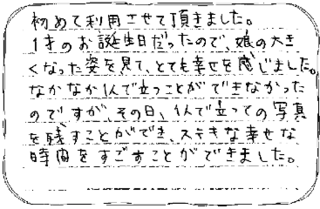 初めて利用させて頂きました。
1才のお誕生日だったので、娘の大き
くなった姿を見て、とても幸せを感じました。
なかなか1人で立つことができなかった
のですが、その日、1人で立っての写真
を残すことができ、ステキな幸せな
時間をすごすことができました。